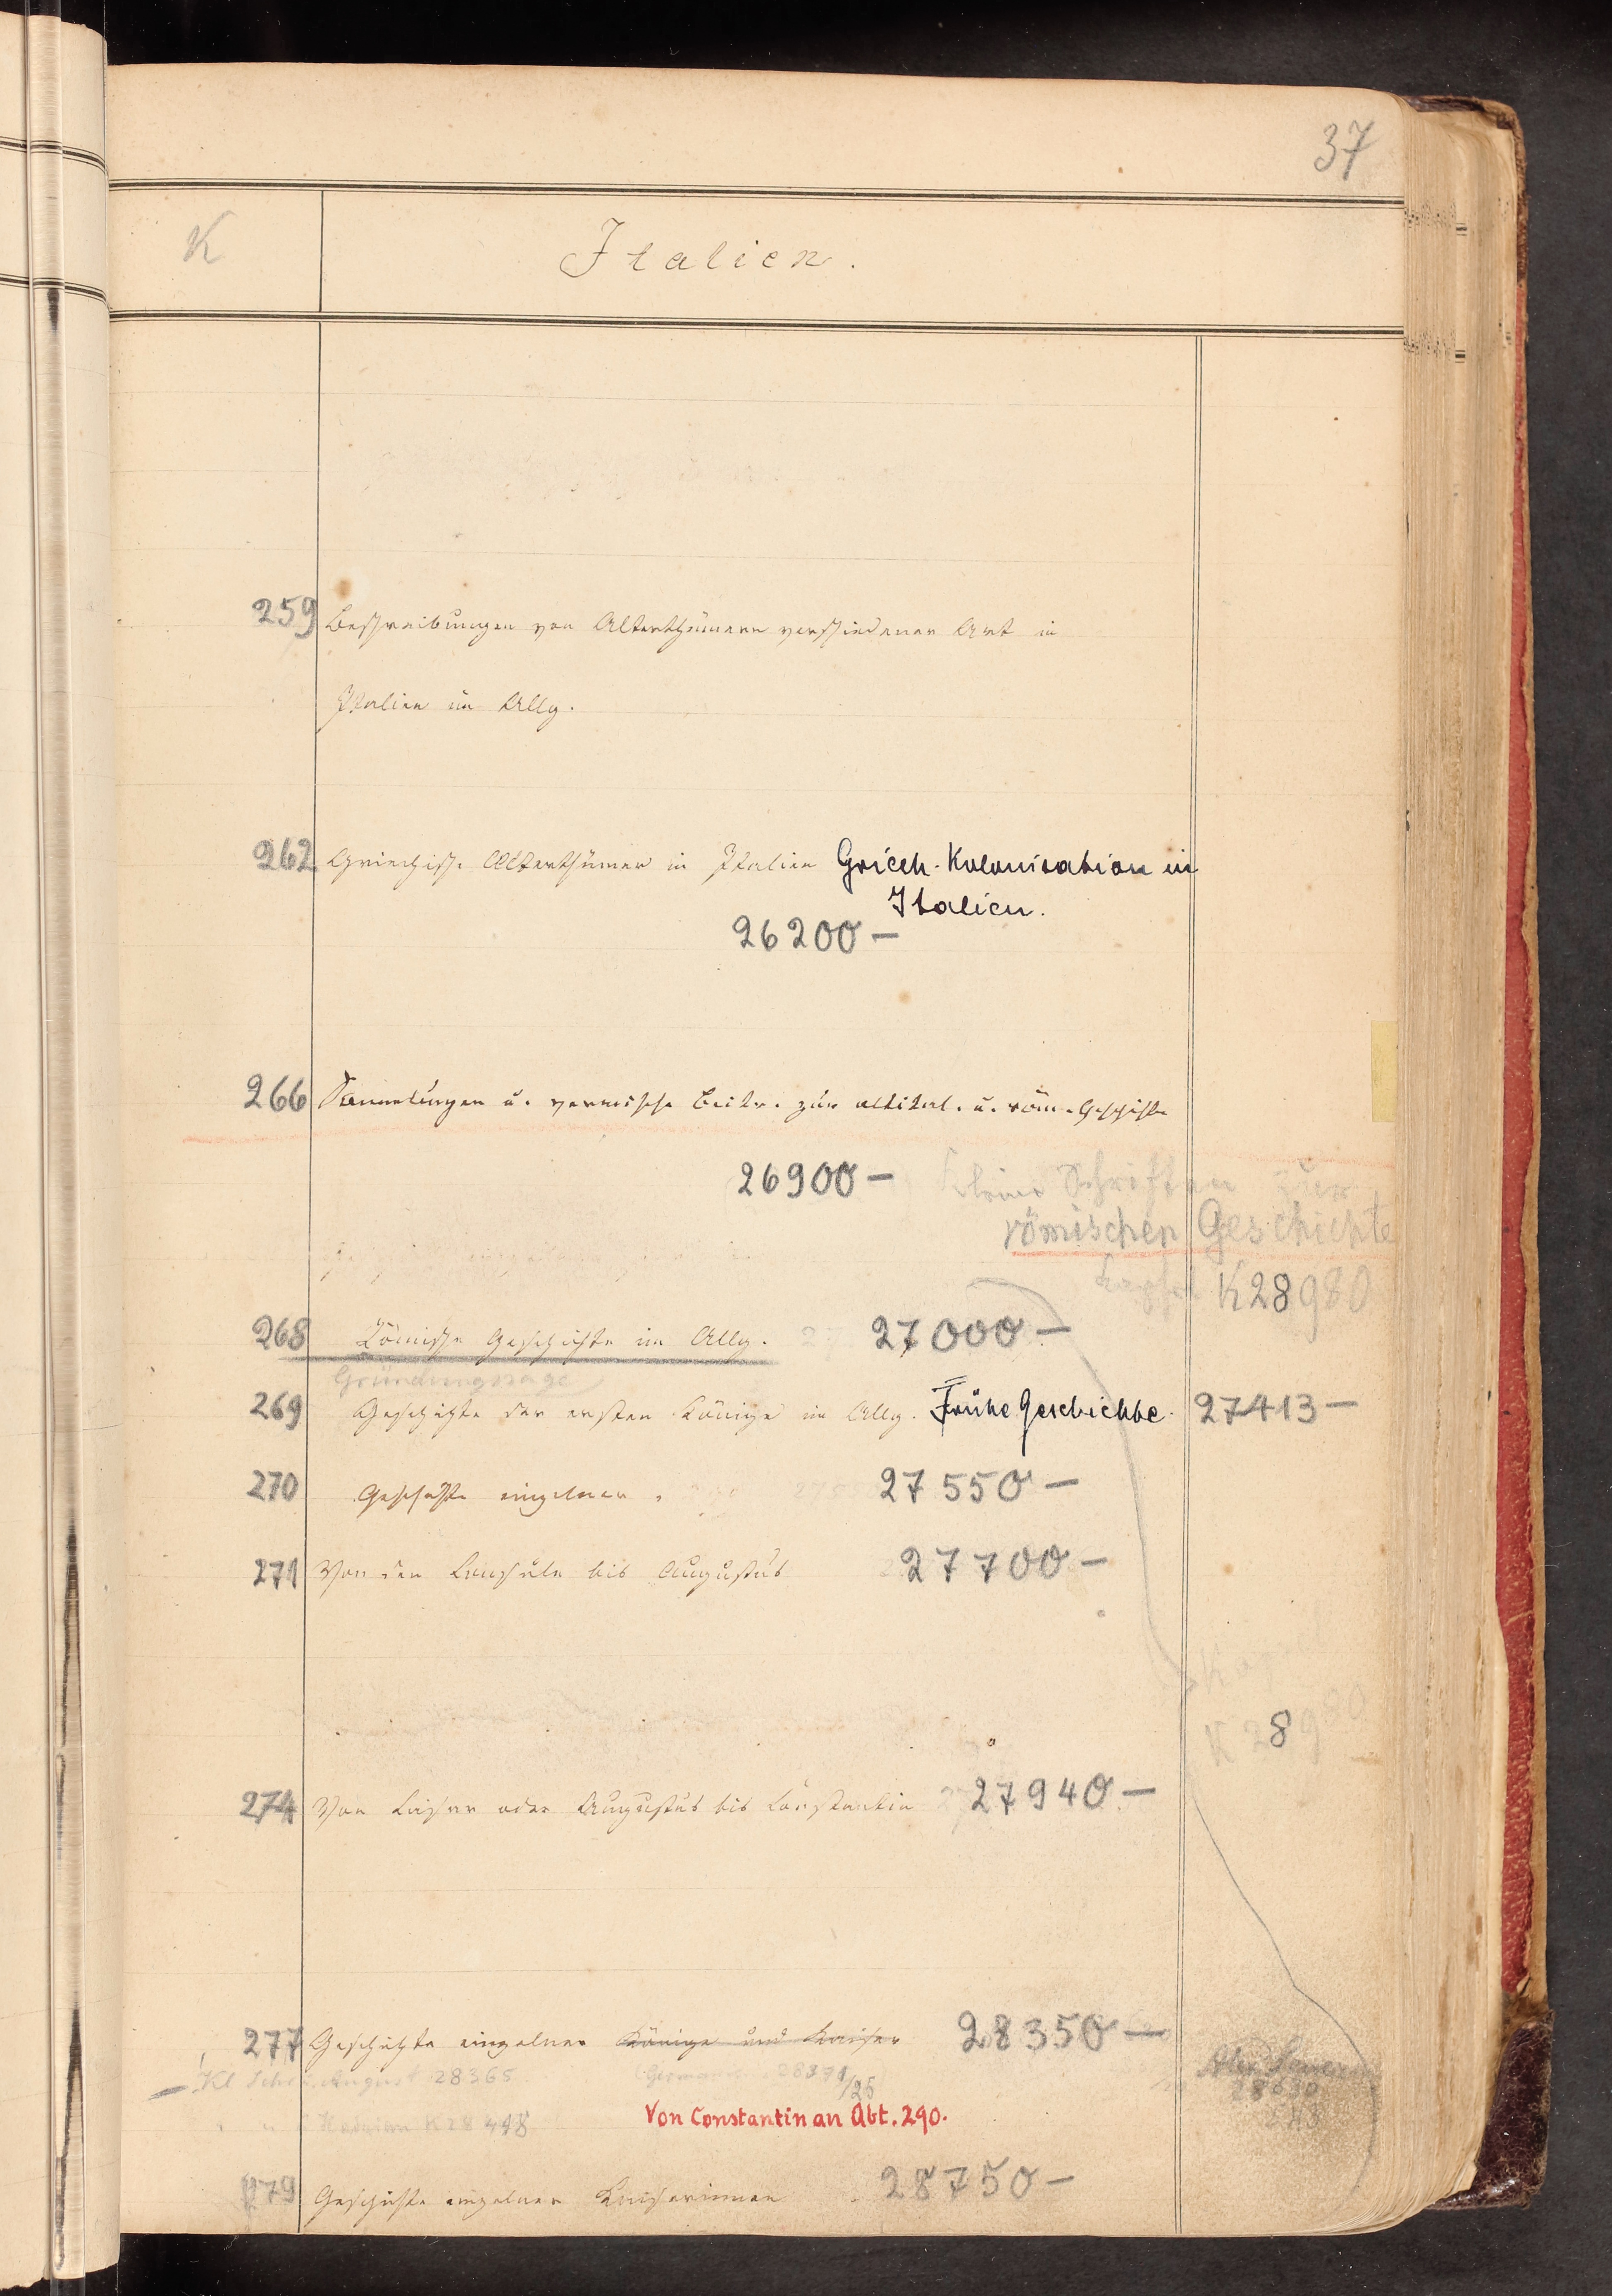 37
K
Italien.
259 Beschreibungen von Alterthümern verschiedener Art in
Italien im Allg.
262 Griechische Alterthümer in Italien Griech. Kolonisation in
Italien.
26200 —
266 Sammlungen u. vermischte Beitr. zur altital. u. röm. Geschichte
26900 — Kleine Schriften zur
römischen Geschichte
Kapsel K 28980
268 Römische Geschichte im Allg. 27000 —
Gründungssage
269 Geschichte der ersten Könige im Allg. Frühe Geschichte. 27413 —
270 Geschichte einzelner 27550 —
271 Von den Consuln bis Augustus 27700 —
K 28980
274 Von Caesar oder Augustus bis Constantin 27940 —
277 Geschichte einzelner Könige und Kaiser 28350 —
Kl Schr. August 28365 28371/25
28630
Hadrian K 28 448 Von Constantin an Abt. 290.
279 Geschichte einzelner Kaiserinnen 28750 —